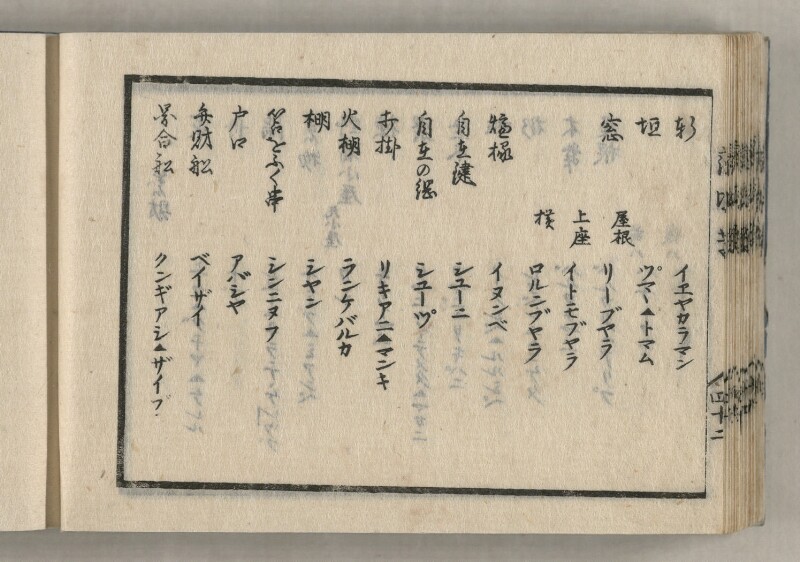 軒 イヱヤカラマン
垣 ヅマー▲トマム
窓 屋根 リーブヤラ
上座 イトモブヤラ
横 ロルンブヤラ
爐椽 イヌンベ
自在鍵 シユーニ
自在の縄 シユーヅ
手掛 リキアニ▲マンキ
火棚 ランケバルカ
棚 シヤン
笘をふく串 シンニヌフ
戸口 アバシヤ
弁財舩 ベイザイ
図合舩 クンギアシ▲ザイブ
四十二